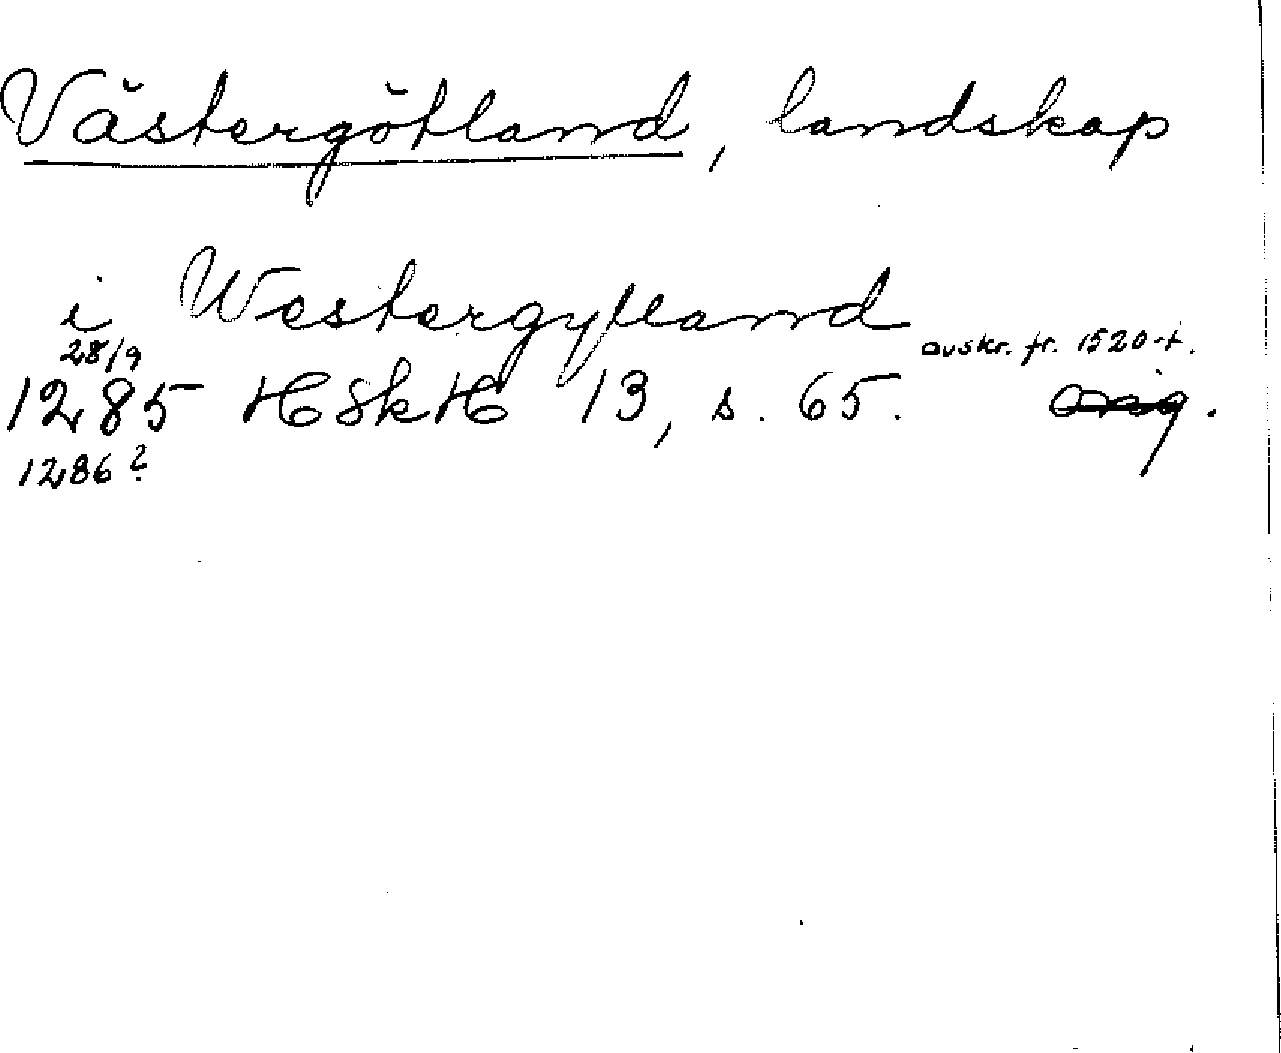 Västergötland, landskap
i Westergytland
28/9 avskr. fr. 1520-t.
1285 HSkH 13, s. 65. orig.
1286?